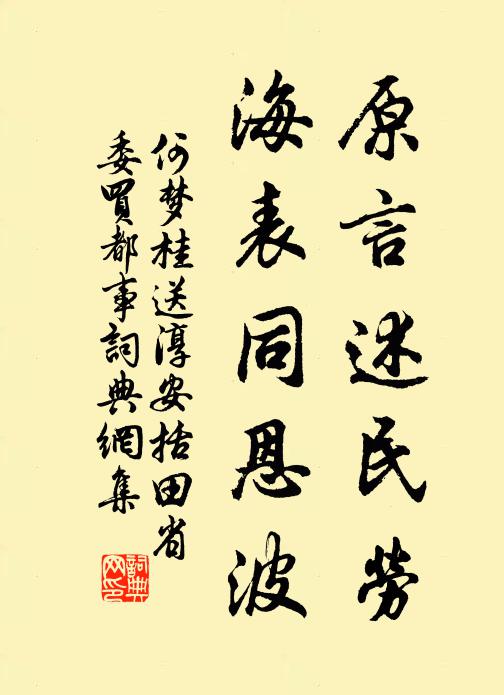 原言述民勞
海表同恩波
何梦桂送淳安括田省
委買都事詞典網集
詞典网印